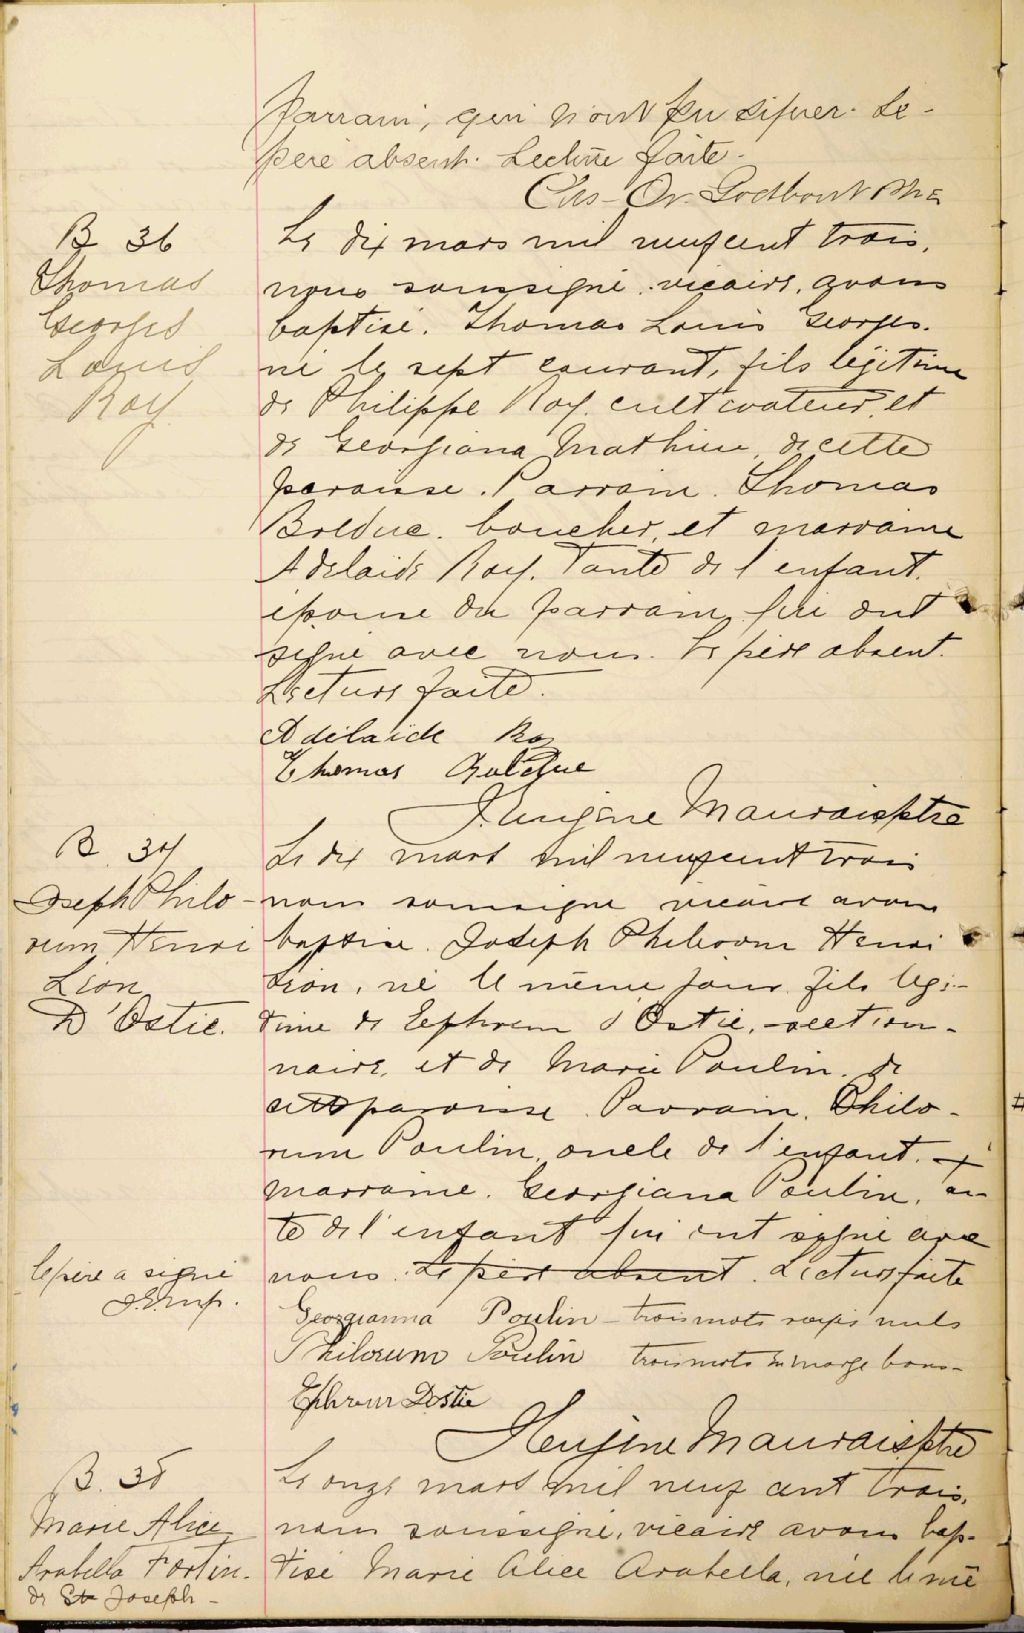 parrain, qui n'ont pu signer. Le
père absent. Lecture faite.
Chs-Or. Godbout Ptre
B 36
Thomas
Georges
Louis
Roy
Le dix mars mil neuf cent trois,
nous soussigné, vicaire, avons
baptisé. Thomas Louis Georges.
né le sept courant, fils légitime
de Philippe Roy. cultivateur, et
de Georgiana Mathieu, de cette
paroisse. Parrain. Thomas
Bolduc. boucher, et marraine
Adelaide Roy. Tante de l'enfant.
épouse du parrain qui ont
signé avec nous. Le père absent.
Lecture faite.
Adélaïde Roy
Thomas Bolduc
J. Eugène Maurais ptre
B 37
Joseph Philo-
rum Henri
Léon
D'Ostie.
Le dix mars mil neuf cent trois
nous soussigné vicaire avons
baptisé. Joseph Philorum Henri
Léon, né le même jour fils légi-
time de Ephrem d'Ostie, section-
naire, et de Marie Poulin. de
cette paroisse. Parrain. Philo-
rum Poulin, oncle de l'enfant. +
marraine. Georgiana Poulin, tan-
te de l'enfant qui ont signé avec
nous. Le père absent. Lecture faite
le père a signé
J.E.M.p.
Georgianna Poulin - trois mots rayés nuls
Philorum Poulin trois mots en marge bons-
Ephrem Dostie
J. Eugène Maurais ptre
B. 38
Marie Alice
Arabella Fortin.
de St Joseph-
Le onze mars mil neuf cent trois,
nous soussigné, vicaire avons bap-
tisé Marie Alice Arabella, née le mê